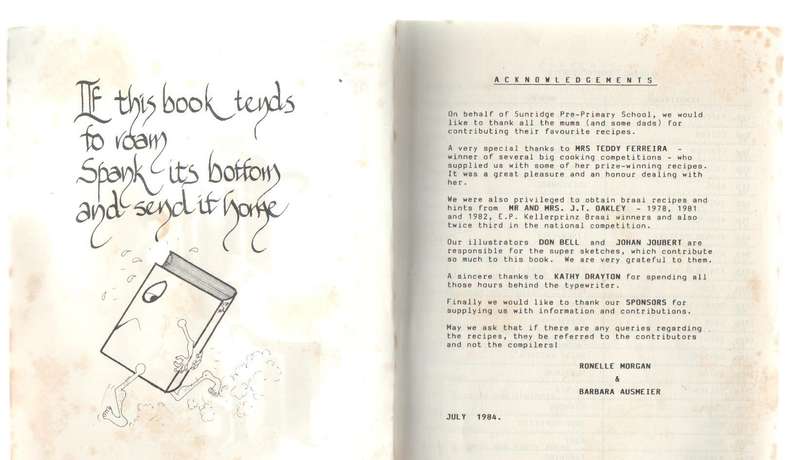 IF this book tends
to roam
Spank its bottom
and send it home
ACKNOWLEDGEMENTS
On behalf of Sunridge Pre-Primary School, we would
like to thank all the mums (and some dads) for
contributing their favourite recipes.
A very special thanks to MRS TEDDY FERREIRA -
winner of several big cooking competitions - who
supplied us with some of her prize-winning recipes.
It was a great pleasure and an honour dealing with
her.
We were also privileged to obtain braai recipes and
hints from MR AND MRS. J.T. OAKLEY - 1978, 1981
and 1982, E.P. Kellerprinz Braai winners and also
twice third in the national competition.
Our illustrators DON BELL and JOHAN JOUBERT are
responsible for the super sketches, which contribute
so much to this book. We are very grateful to them.
A sincere thanks to KATHY DRAYTON for spending all
those hours behind the typewriter.
Finally we would like to thank our SPONSORS for
supplying us with information and contributions.
May we ask that if there are any queries regarding
the recipes, they be referred to the contributors
and not the compilers!
RONELLE MORGAN
&
BARBARA AUSMEIER
JULY 1984.